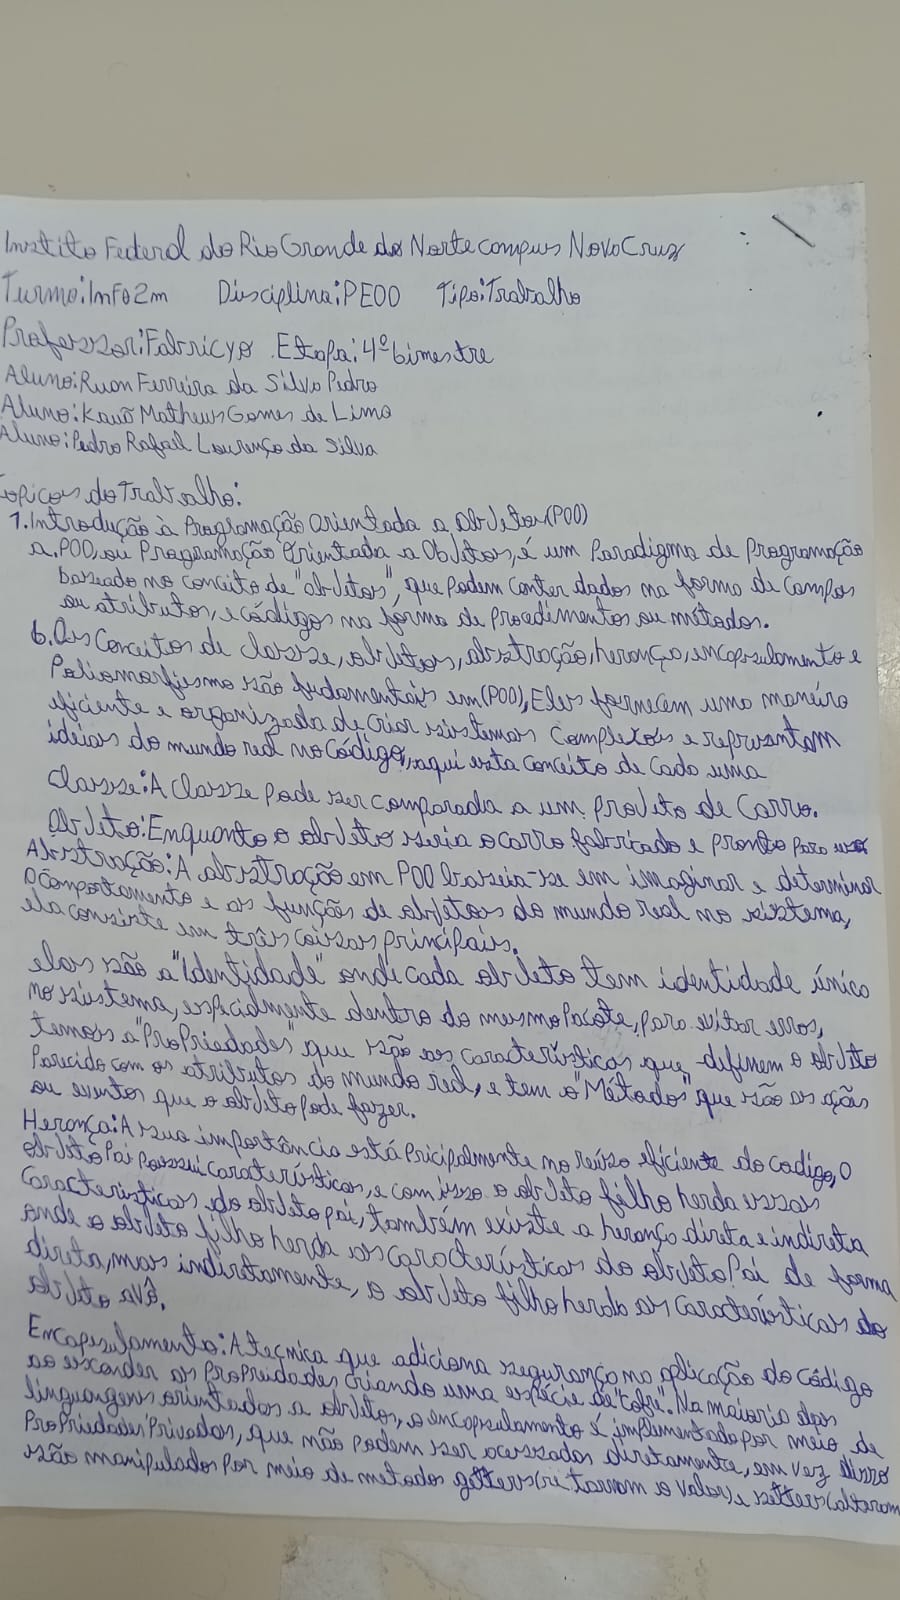 Instituto Federal do Rio Grande do Norte campus Nova Cruz
Turma:Info2m Disciplina:PEOO Tipo:Trabalho
Professor:Fabricyo Etapa:4º bimestre
Aluno:Ruan Ferreira da Silva Pedro
Aluno:Kauã Matheus Gomes de Lima
Aluno:Pedro Rafael Lourenço da Silva
Topicos do Trabalho:
1.Introdução à Programação Orientada a Objetos(POO)
a.POO, ou Programação Orientada a Objetos, é um Paradigma de Programação
baseado no conceito de "objetos", que podem conter dados na forma de campos
ou atributos, e códigos na forma de procedimentos ou métodos.
b.Os Conceitos de classe, objetos, abstração, herança, encapsulamento e
Poliomorfiesmo são fundamentais em(POO), Eles fornecem uma maneira
eficiente e organizada de criar sistemas complexos e representam
ideias do mundo real no código, aqui esta conceito de cada uma
Classe:A Classe pode ser comparada a um projeto de Carro.
Objeto:Enquanto o objeto seria o carro fabricado e pronto para uso
Abstração:A abstração em POO baseia-se em imaginar e determinar
o comportamento e as funções de objetos do mundo real no sistema,
ela consiste em três coisas principais.
elas são a "Identidade" onde cada objeto tem identidade único
no sistema, especialmente dentro do mesmo Pacote, para evitar erros,
temos a "Propriedades" que são as características que definem o objeto
Parecido com os atributos do mundo real, e tem o "Métodos" que são as ação
ou eventos que o objeto pode fazer.
Herança:A sua importância está pricipalmente no reúso eficiente do codigo, o
objeto Pai possui características, e com isso o objeto filho herda essas
características do objeto pai, também existe a herança direta e indireta
onde o objeto filho herda as características do objeto Pai de forma
direta, mas indiretamente, o objeto filho herda as características do
objeto avô.
Encapsulamento:A tecnica que adiciona segurança na aplicação do código
ao esconder as propriedades criando uma espécie de "cofre". Na maioria das
linguagens orientadas a objetos, o encapsulamento é implementado por meio de
Propriedades Privadas, que não podem ser acessadas diretamente, em vez disso
são manipulados por meio de metodos getters(retornam o valor) e setters(alteram